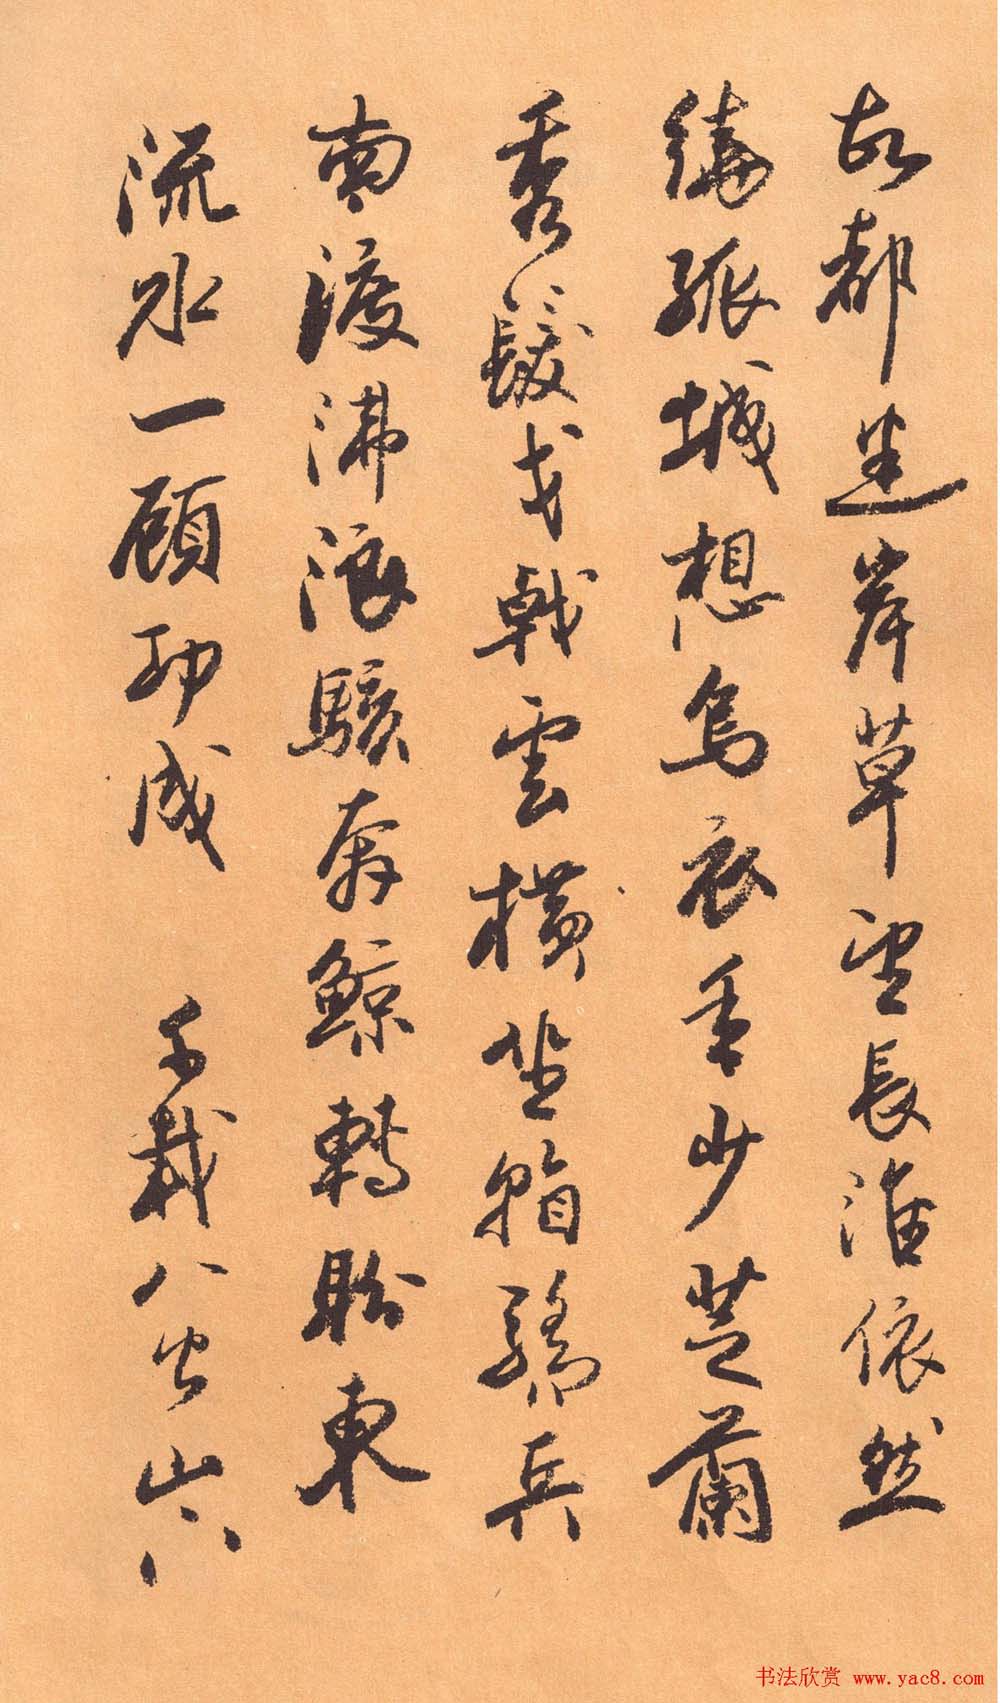 故都迷岸草望長淮依然
繞孤城想烏衣年少芝蘭
秀髮戈戟雲橫坐看驕兵
南渡沸浪駭奔鯨轉盼東
流水一顧功成 千載八公山下
书法欣赏 www.yac8.com